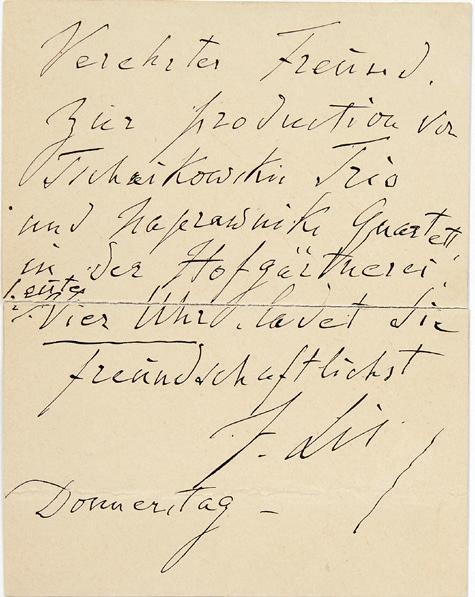 Verehrter Freund.
Zur production von
Tschaikowskis Trio
und Naprawniks Quartett,
in der Hofgärtnerei,
heute
Vier Uhr, ladet Sie
freundschaftlichst
F. Liszt
Donnerstag –